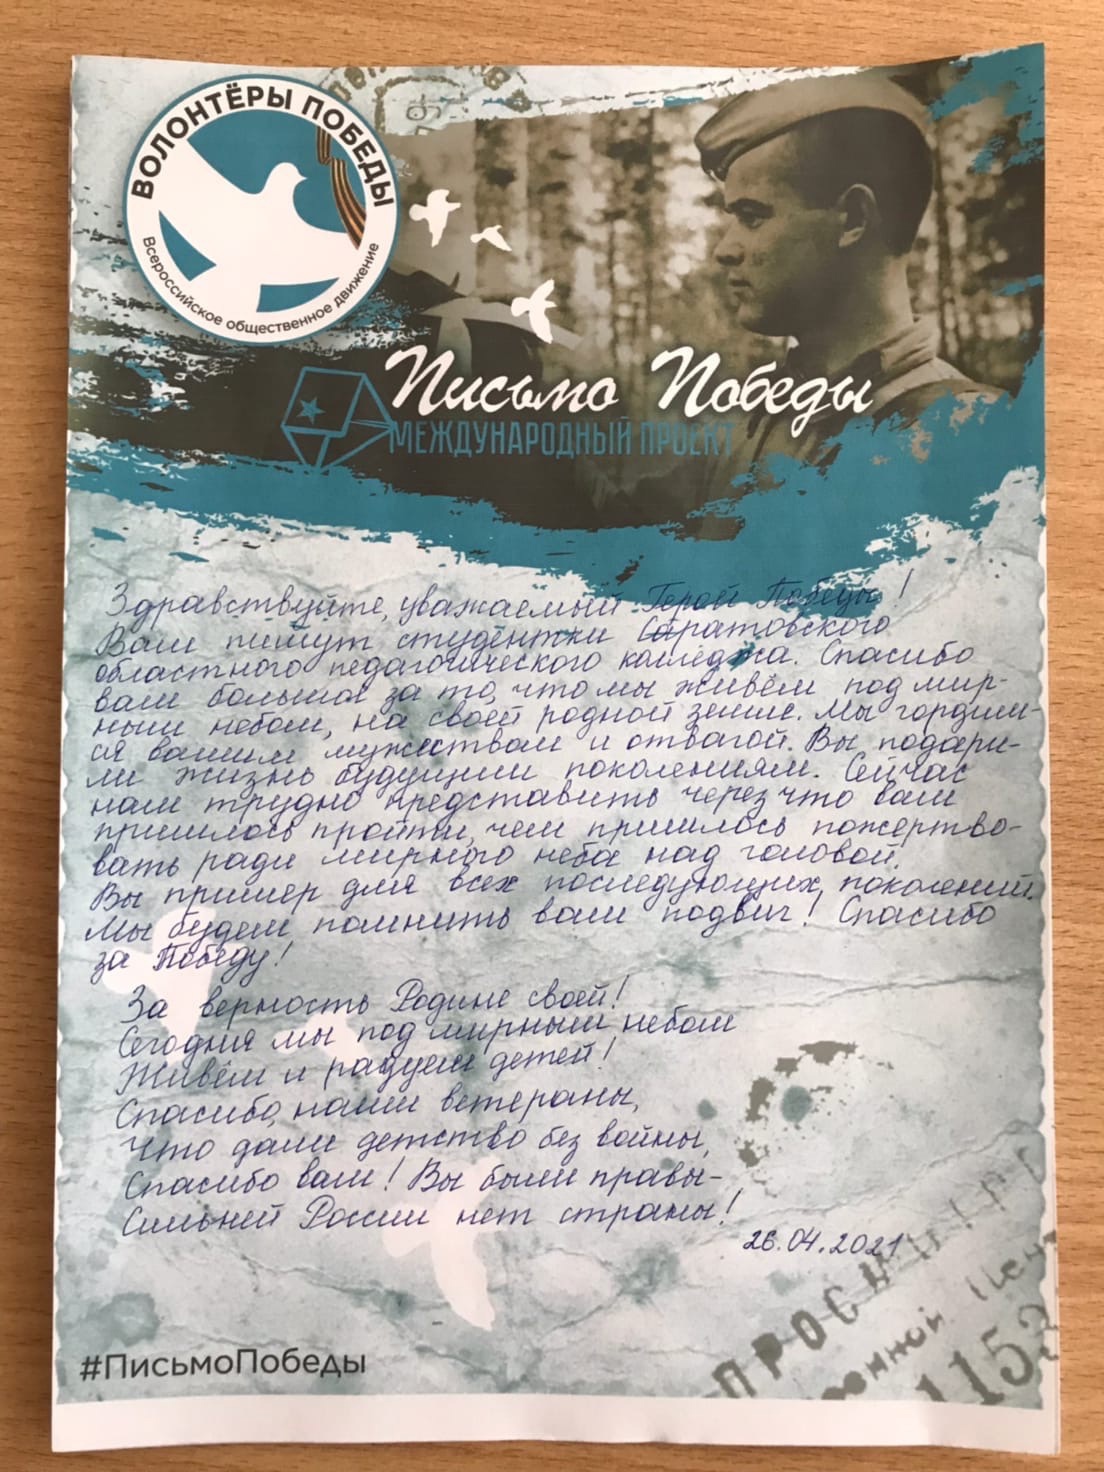 ВОЛОНТЁРЫ ПОБЕДЫ
Всероссийское общественное движение
Письмо Победы
МЕЖДУНАРОДНЫЙ ПРОЕКТ
Здравствуйте, уважаемый Герой Победы!
Вам пишут студентки Саратовского
областного педагогического колледжа. Спасибо
вам большое за то, что мы живём под мир-
ным небом, на своей родной земле. Мы гордим-
ся вашим мужеством и отвагой. Вы подари-
ли жизнь будущим поколениям. Сейчас
нам трудно представить через что вам
пришлось пройти, чем пришлось пожертво-
вать ради мирного неба над головой.
Вы пример для всех последующих поколений.
Мы будем помнить ваш подвиг! Спасибо
за Победу!
За верность Родине своей!
Сегодня мы под мирным небом
Живём и радуем детей!
Спасибо, наши ветераны,
Что дали детство без войны,
Спасибо вам! Вы были правы-
Сильней России нет страны!
26.04.2021
#ПисьмоПобеды
1153